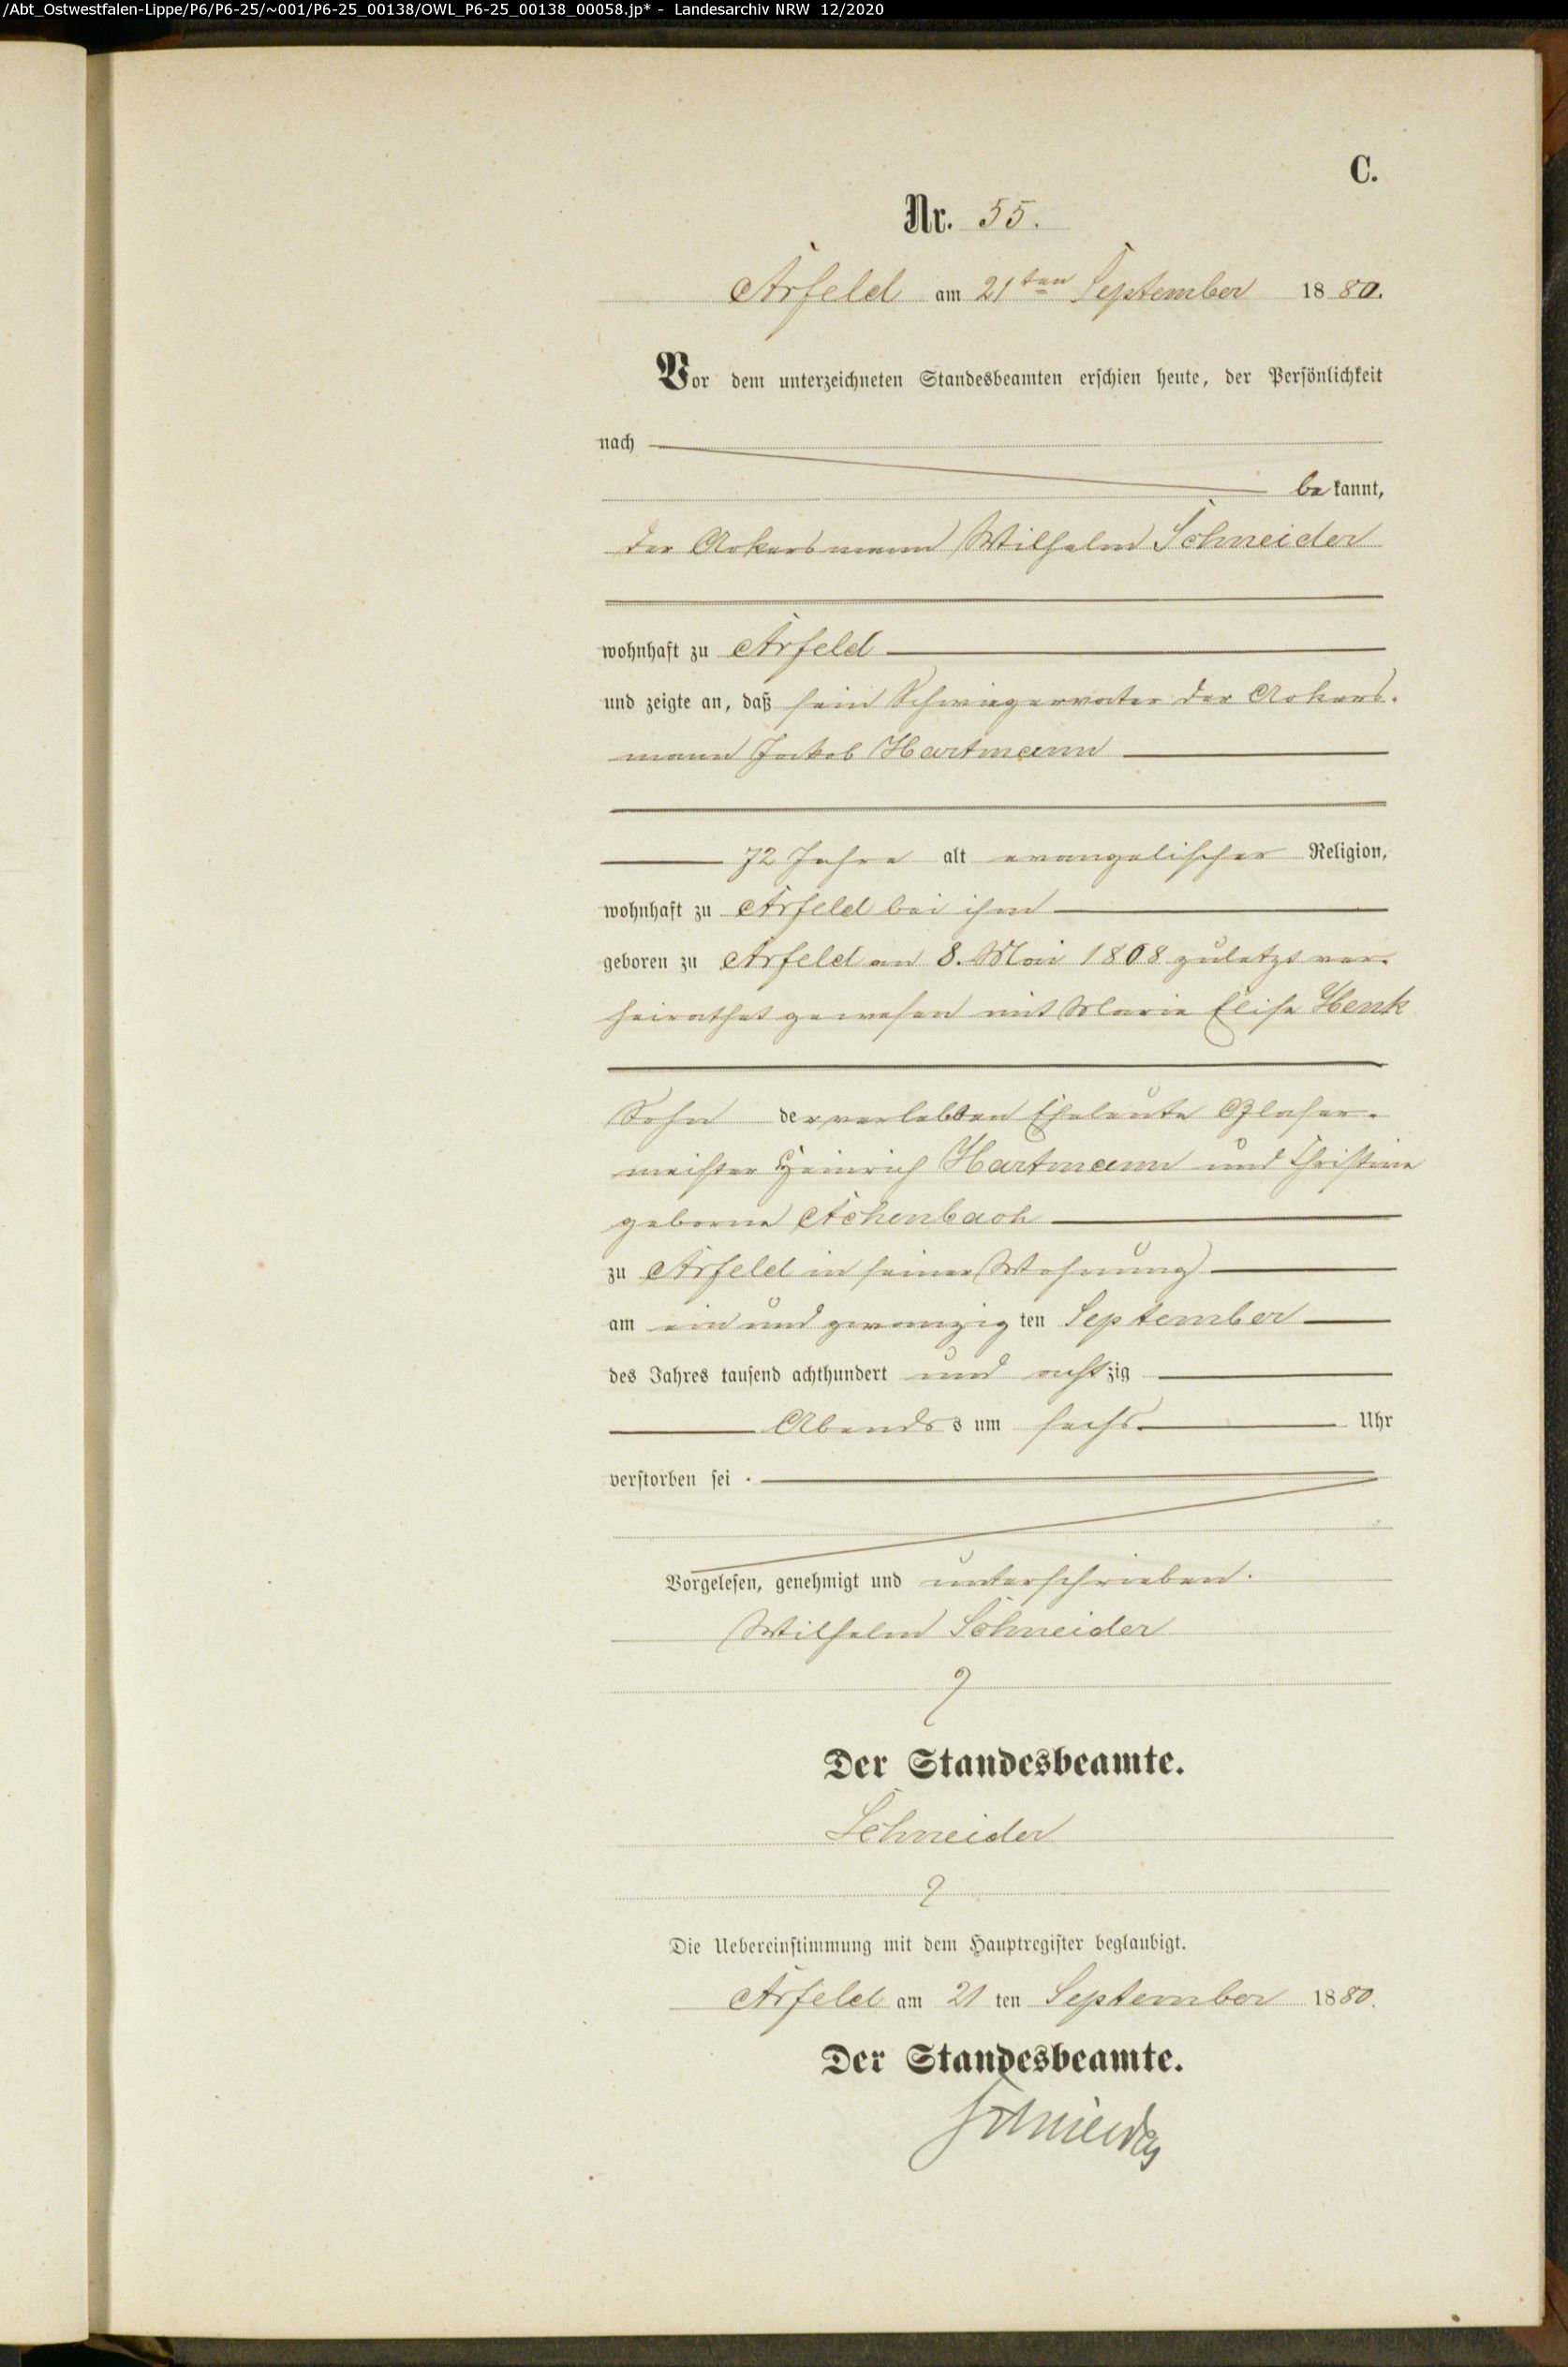 /Abt_Ostwestfalen-Lippe/P6/P6-25/~001/P6-25_00138/OWL_P6-25_00138_00058.jp* - Landesarchiv NRW 12/2020
C.
Nr. 55.
Arfeld am 21ten September 1880.
Vor dem unterzeichneten Standesbeamten erschien heute, der Persönlichkeit
nach
bekannt,
der Ackersmann Wilhelm Schneider
wohnhaft zu Arfeld
und zeigte an, daß sein Schwiegervater der Ackers-
mann Jakob Hartmann
72 Jahre alt evangelischer Religion,
wohnhaft zu Arfeld bei ihm
geboren zu Arfeld am 8. Mai 1808 zuletzt ver-
heirathet gewesen mit Marie Elise Henk
Sohn der verlebten Eheleute Glaser-
meister Heinrich Hartmann und Christine
geborne Achenbach
zu Arfeld in seiner Wohnung
am ein und zwanzigten September
des Jahres tausend achthundert und achtzig
Abends s um sechs Uhr
verstorben sei.
Vorgelesen, genehmigt und unterschrieben.
Wilhelm Schneider
Der Standesbeamte.
Schneider
Die Uebereinstimmung mit dem Hauptregister beglaubigt.
Arfeld am 21ten September 1880.
Der Standesbeamte.
Schneider